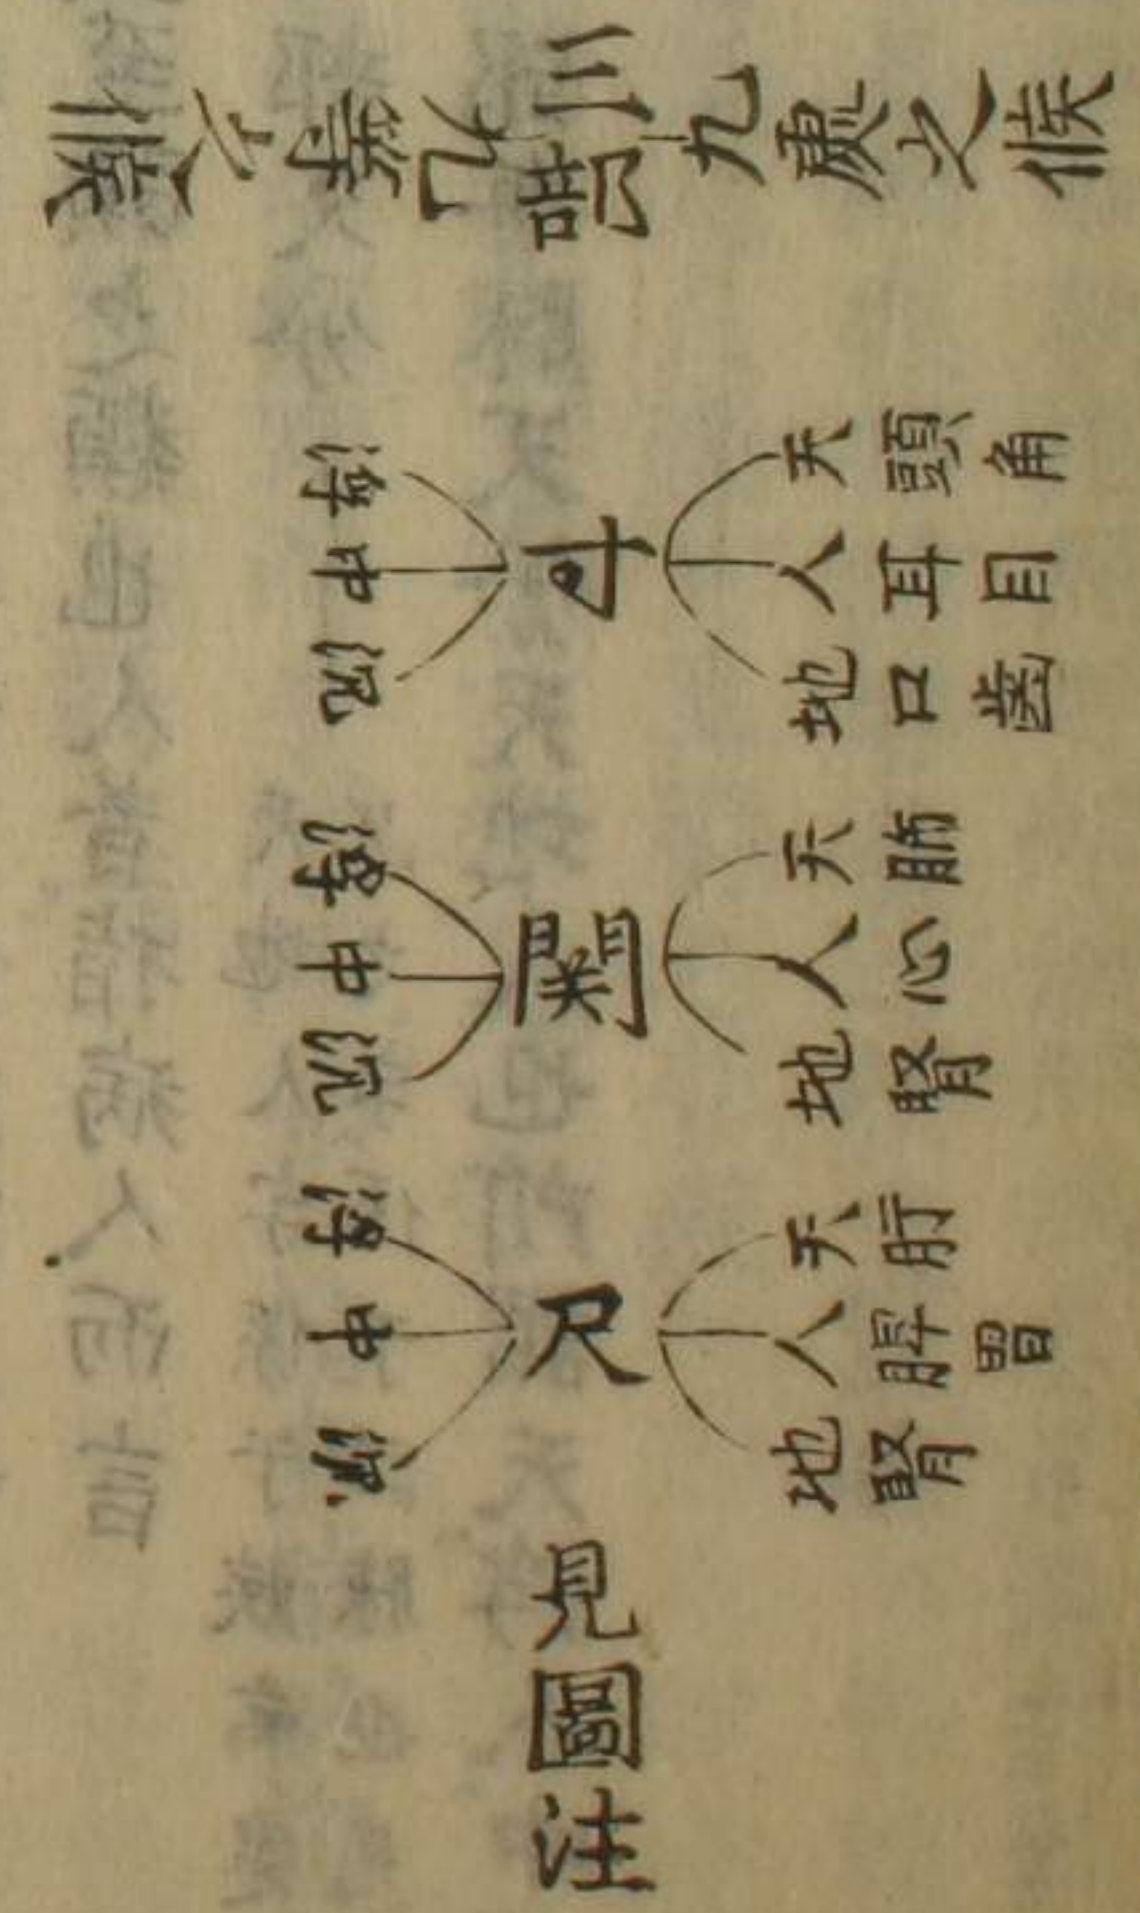 三部
九處之候
九等之候
寸
天頭角
人耳目
地口齒
浮
中
沉
関
天肺
人心
地腎
浮
中
沉
尺
天肝
人脾胃
地腎
浮
中
沉
見圖注